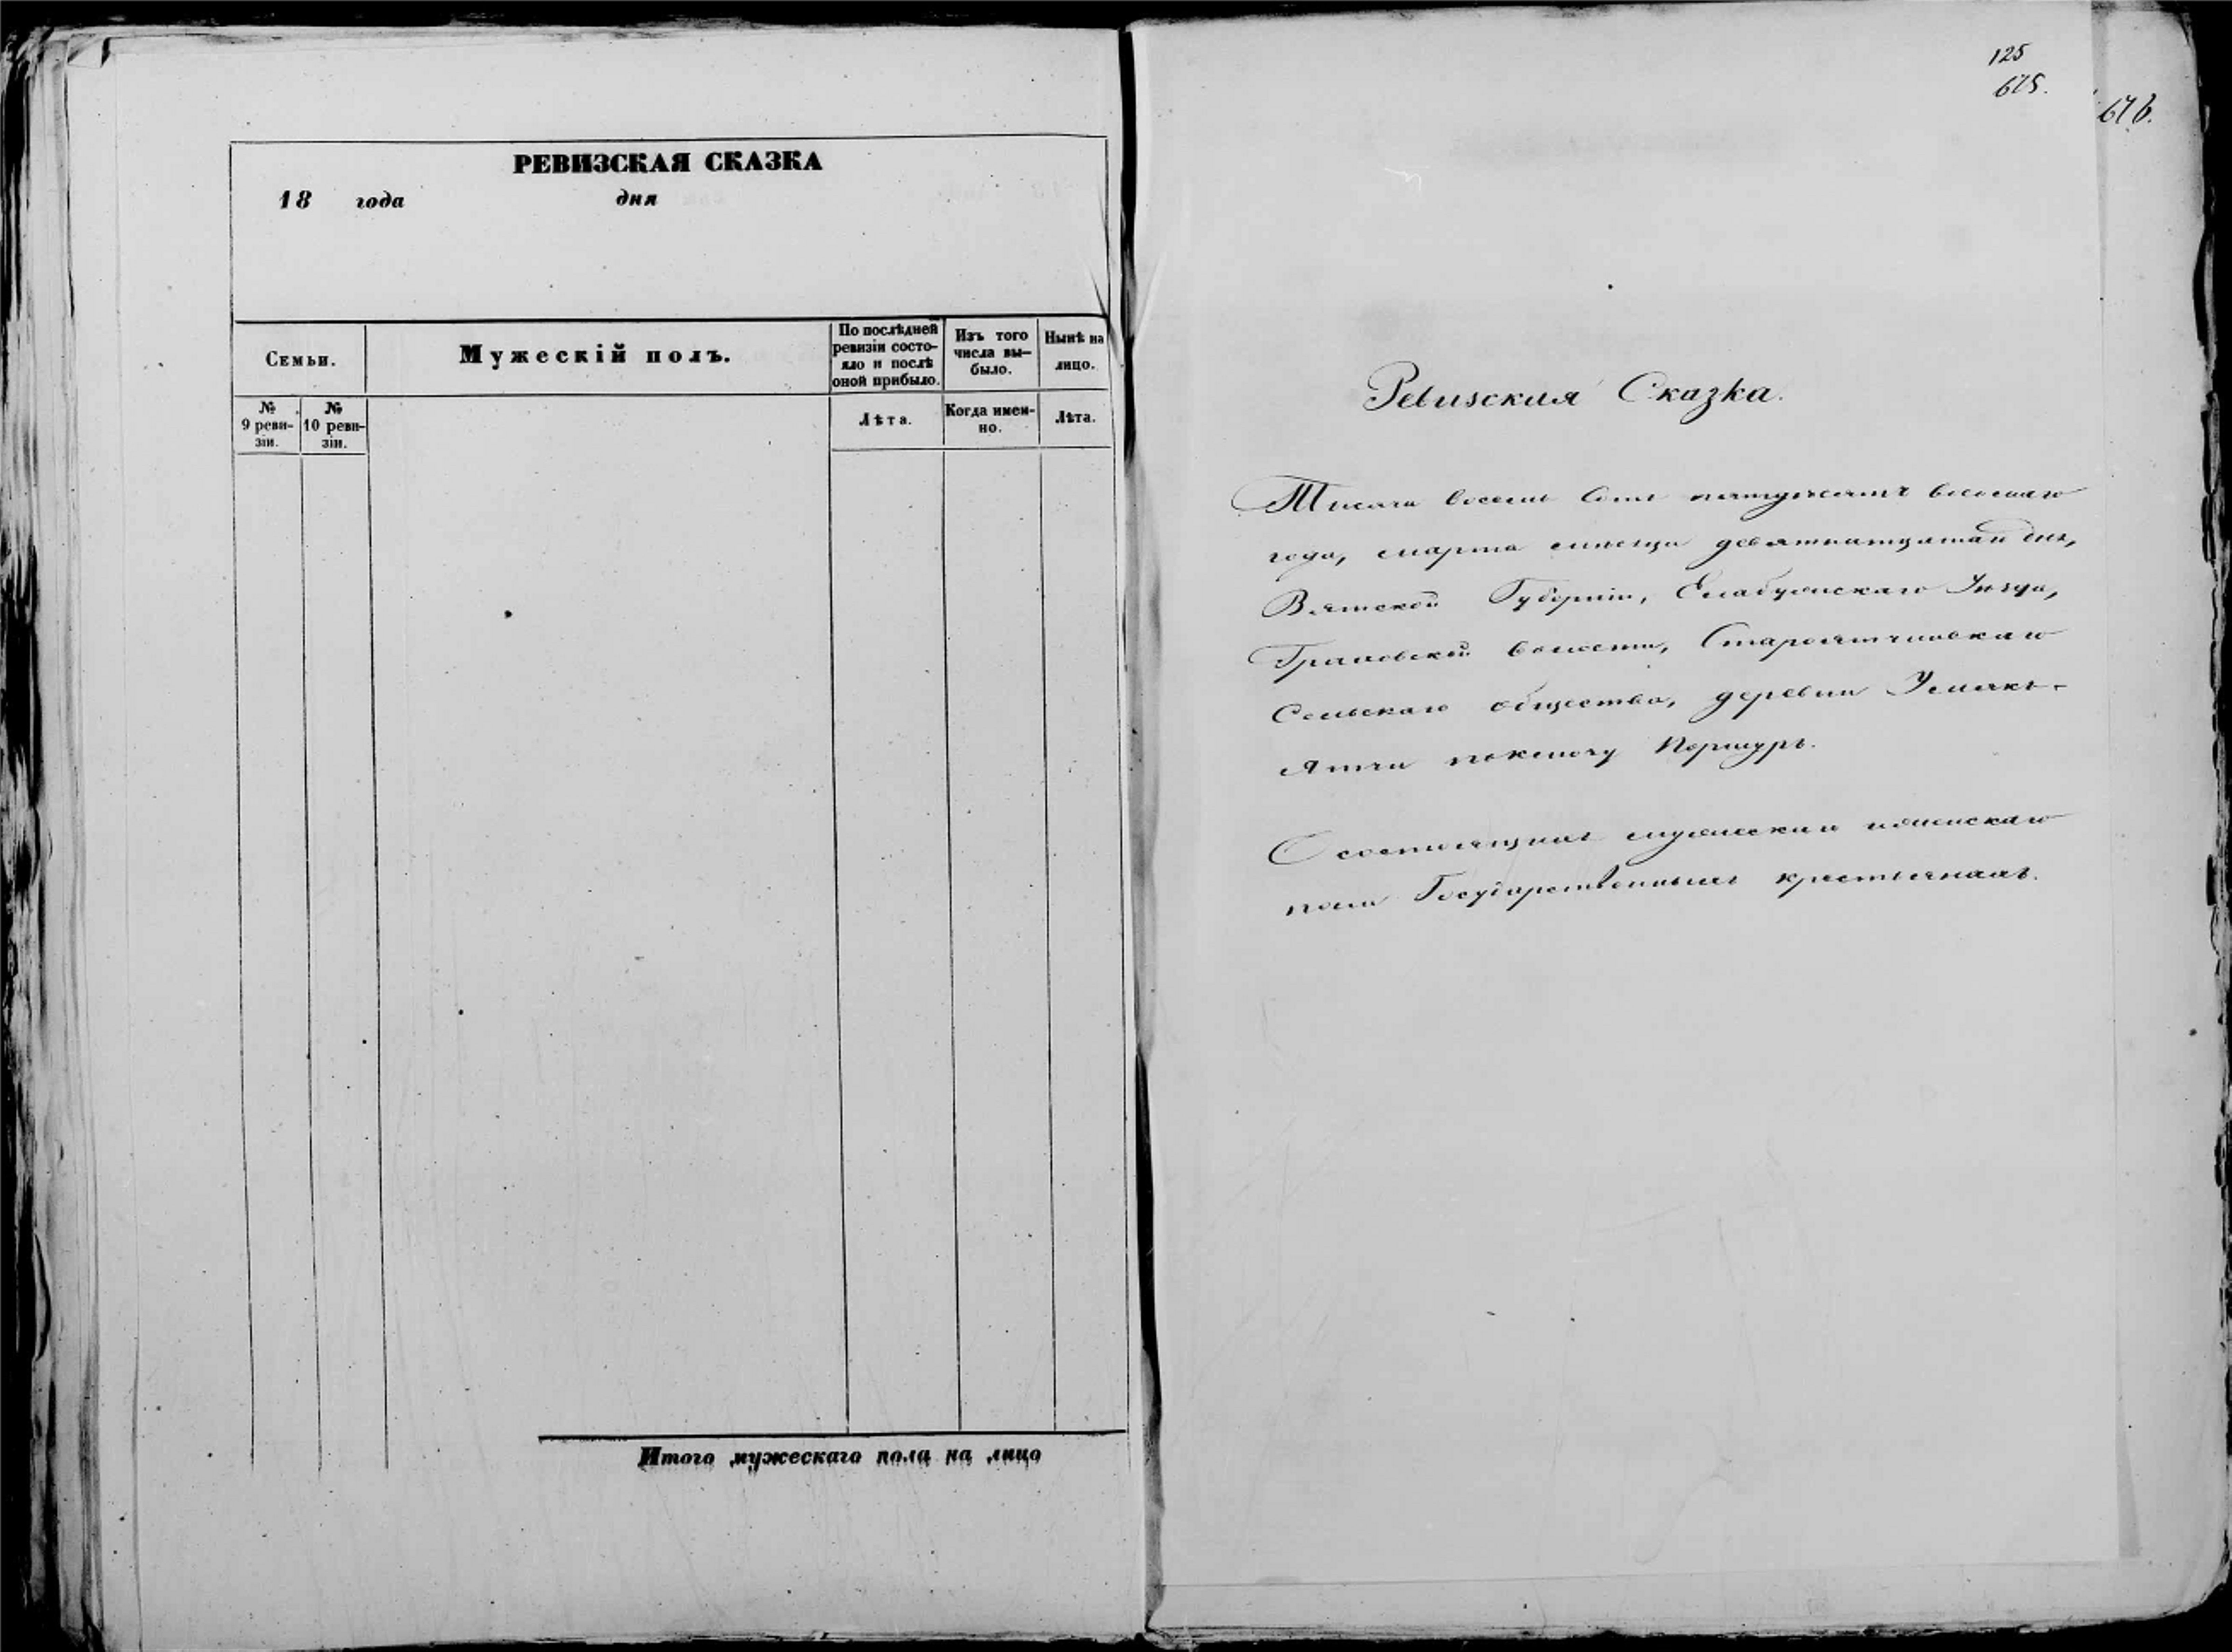 РЕВИЗСКАЯ СКАЗКА
18 года дня
Семьи.
Мужескій полъ.
По послѣдней ревизіи состо-
яло и послѣ
оной прибыло.
Изъ того
числа вы-
было.
Нынѣ на
лицо.
№
9 реви-
зіи.
№
10 реви-
зіи.
Лѣта.
Когда имен-
но.
Лѣта.
Итого мужескаго пола на лицо
125
675.
676.
Ревизская Сказка.
Тысяча восемь сотъ пятдесятъ восьмаго
года, марта мѣсяца девятнатцатаго дня,
Вятской Губерніи, Елабужскаго Уѣзда,
волости, Старо
Сельскаго общества, деревни
Ятчи поключу Поршуръ.
О состоящихъ мужескаго и женскаго
пола Государственныхъ крестьянахъ.